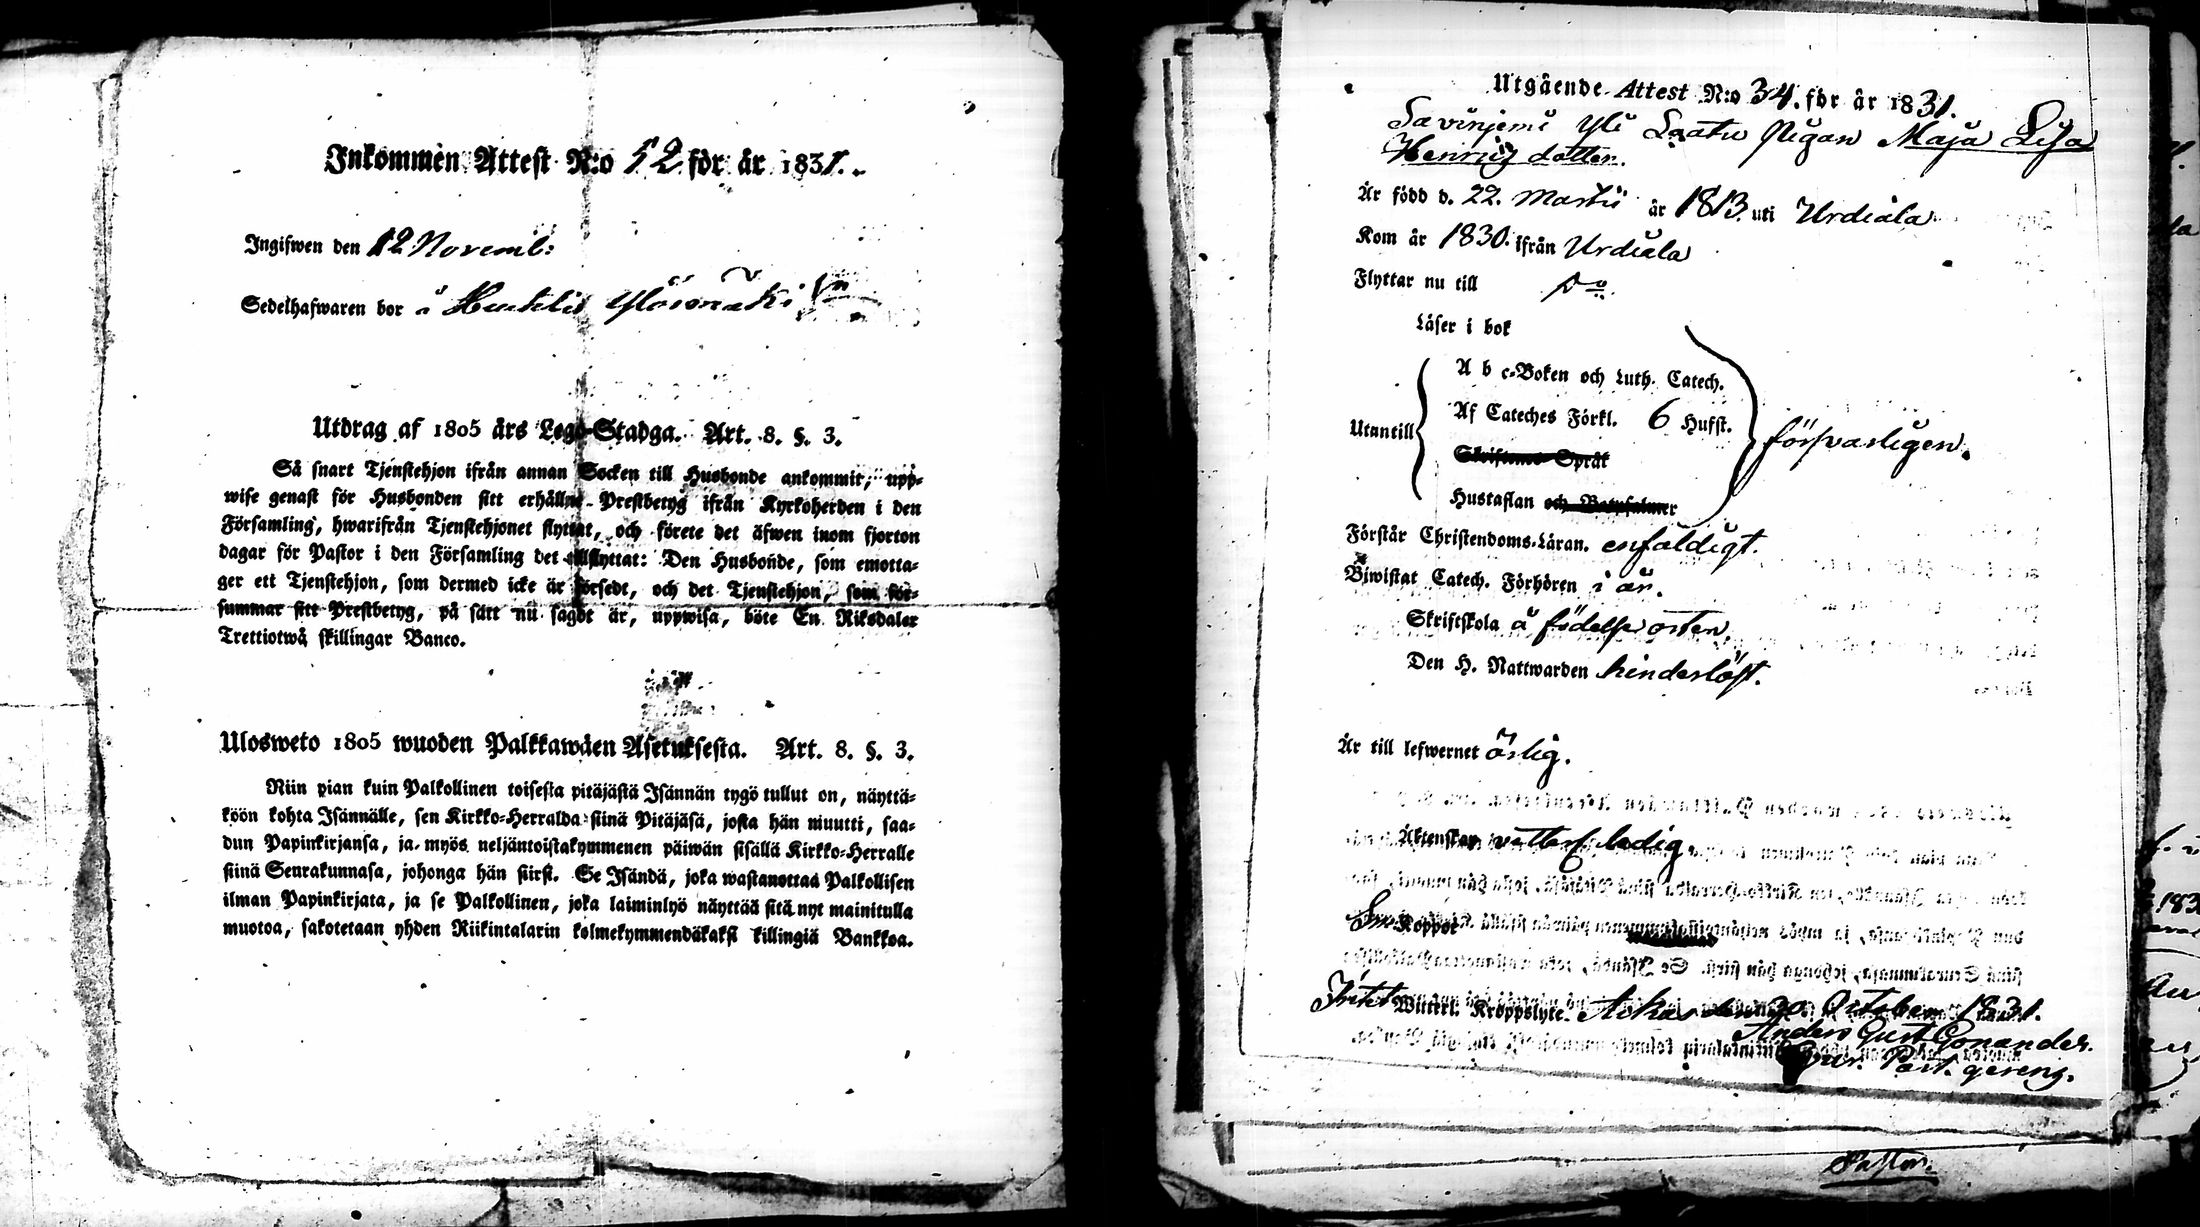 Inkommen Attest N:o 52 för år 1831.
Ingifwen den 12 Novemb:
Sedelhafwaren bor å Huhtis Ylöismäki
Utdrag af 1805 års Lego-Stadga. Art. 8. §. 3.
Så snart Tjenstehjon ifrån annan Socken till Husbonde ankommit, upp-
wise genast för Husbonden sitt erhållne Prestbetyg ifrån Kyrkoherden i den
Församling, hwarifrån Tjenstehjonet flyttat, och förete det äfwen inom fjorton
dagar för Pastor i den Församling det tillflyttat: Den Husbonde, som emotta-
ger ett Tjenstehjon, som dermed icke är försedt, och det Tjenstehjon, som för-
summar sitt Prestbetyg, på sätt nu sagdt är, uppwisa, böte En Riksdaler
Trettiotwå skillingar Banco.
Ulosweto 1805 wuoden Palkkawäen Asetuksesta. Art. 8. §. 3.
Niin pian kuin Palkollinen toisesta pitäjästä Isännän tygö tullut on, näyttä-
köön kohta Isännälle, sen Kirkko-Herralda siinä Pitäjäsä, josta hän muutti, saa-
dun Papinkirjansa, ja myös neljäntoistakymmenen päiwän sisällä Kirkko-Herralle
siinä Seurakunnasa, johonga hän siirsi. Se Isändä, joka wastanottaa Palkollisen
ilman Papinkirjata, ja se Palkollinen, joka laiminlyö näyttää sitä nyt mainitulla
muotoa, sakotetaan yhden Riikintalarin kolmekymmendäkaksi killingiä Bankkoa.
Utgående Attest N:o 34. för år 1831.
Savinjemi Yli Laatu Pigan Maja Lisa
Henricsdotter.
Är född d. 22. Martii år 1813. uti Urdiala
Kom år 1830. ifrån Urdiala
Flyttar nu till Do
Läser i bok
Utantill
A b c-Boken och Luth. Catech.
Af Cateches Förkl. 6 Hufst.
Skriftenes Språk
Hustaflan och Botpsalmer
försvarligen.
Förstår Christendoms-Läran. enfaldigt.
Biwistat Catech. Förhören i år.
Skriftskola å födelse orten.
Den H. Nattwarden hinderlöst.
Är till lefwernet ärlig.
Äktenskap ledig.
Koppor
Witterl. Kroppslyte. Ackas den 30. October 1831.
Anders Gust. Conander.
Past.
Pastor.